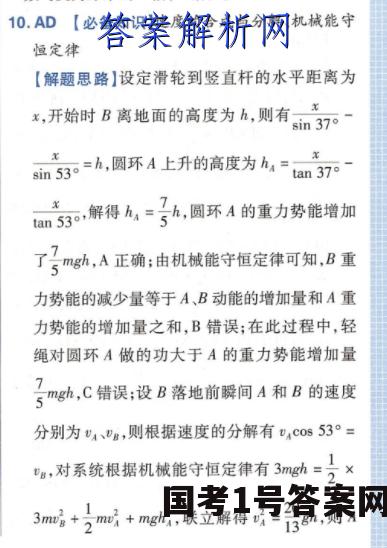 10. AD 【必备知识】速度的合成与分解、机械能守
答案解析网
恒定律
【解题思路】设定滑轮到竖直杆的水平距离为
x,开始时 B 离地面的高度为 h,则有 x/sin 37° −
x/sin 53° = h,圆环 A 上升的高度为 h_A = x/tan 37° −
x/tan 53°,解得 h_A = 7/5 h,圆环 A 的重力势能增加
了 7/5 mgh,A 正确;由机械能守恒定律可知,B 重
力势能的减少量等于 A、B 动能的增加量和 A 重
力势能的增加量之和,B 错误;在此过程中,轻
绳对圆环 A 做的功大于 A 的重力势能增加量
7/5 mgh,C 错误;设 B 落地前瞬间 A 和 B 的速度
分别为 v_A、v_B,则根据速度的分解有 v_A cos 53° =
v_B,对系统根据机械能守恒定律有 3mgh = 1/2 ×
3mv_B² + 1/2 mv_A² + mgh_A,联立解得 v_A² = gh,则 A
国考1号答案网